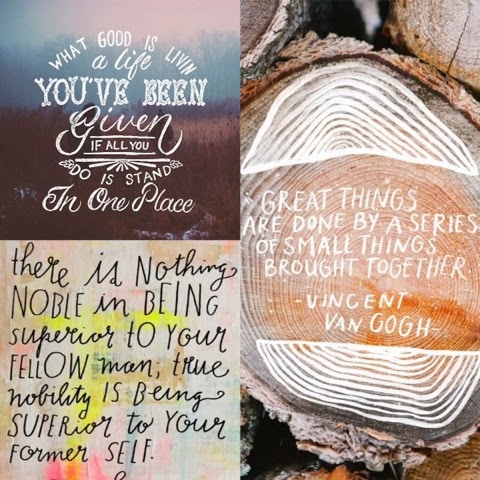 WHAT GOOD IS LIVIN
a life
YOU'VE BEEN
Given
IF ALL YOU
DO IS STAND
In One Place
there is NOTHING
NOBLE in BEING
superior to YOUR
FELLOW man; true
nobility IS Being
SUPERIOR to YOUR
FORMER SELF.
GREAT THINGS
ARE DONE BY A SERIES
OF SMALL THINGS
BROUGHT TOGETHER
-VINCENT
VAN GOGH-